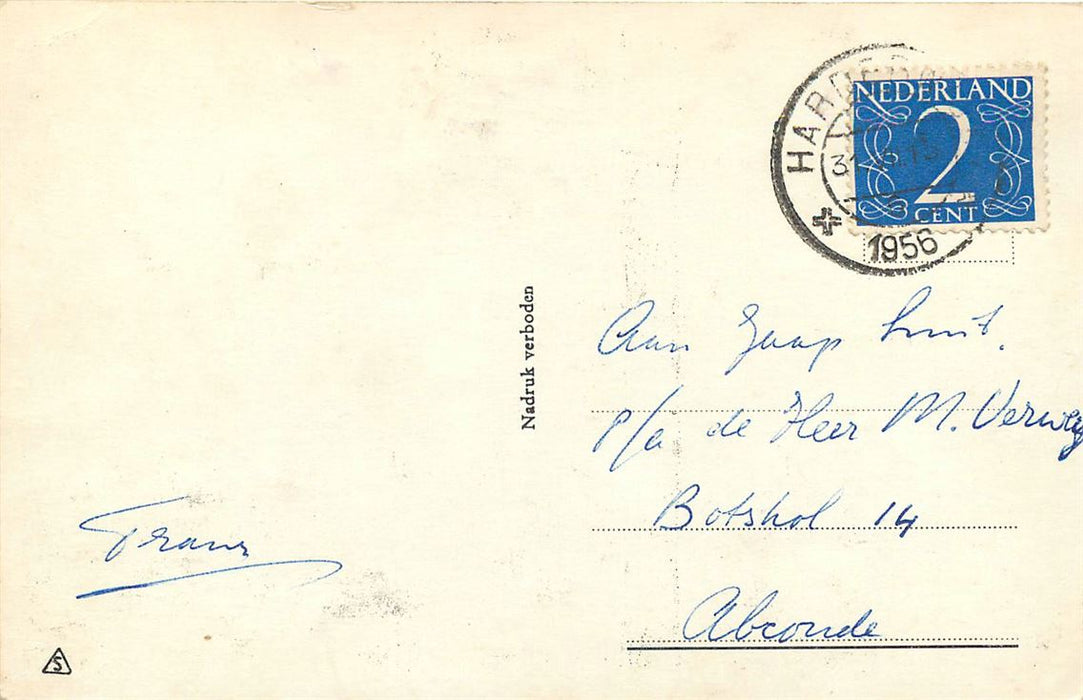 NEDERLAND
2
CENT
1956
Nadruk verboden
Aan Jaap Smit.
p/a de Heer M. Verwey
Botshol 14
Abcoude
Frans
S